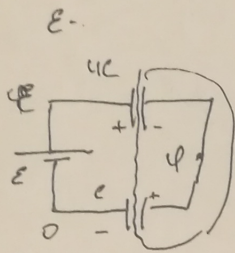 ε-
4C
φε
+ -
ε
φ
C
+
0 -